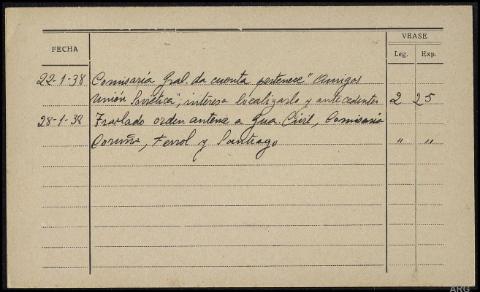 VEASE
FECHA
Leg. Exp.
22-1-38 Comisaría Gral. da cuenta pertenece "Amigos
Unión Soviética", interesa localizarlo y antecedentes 2 25
28-1-38 Traslado orden anterior a Gua. Civil, Comisaria
Coruña, Ferrol y Santiago " "
ARG